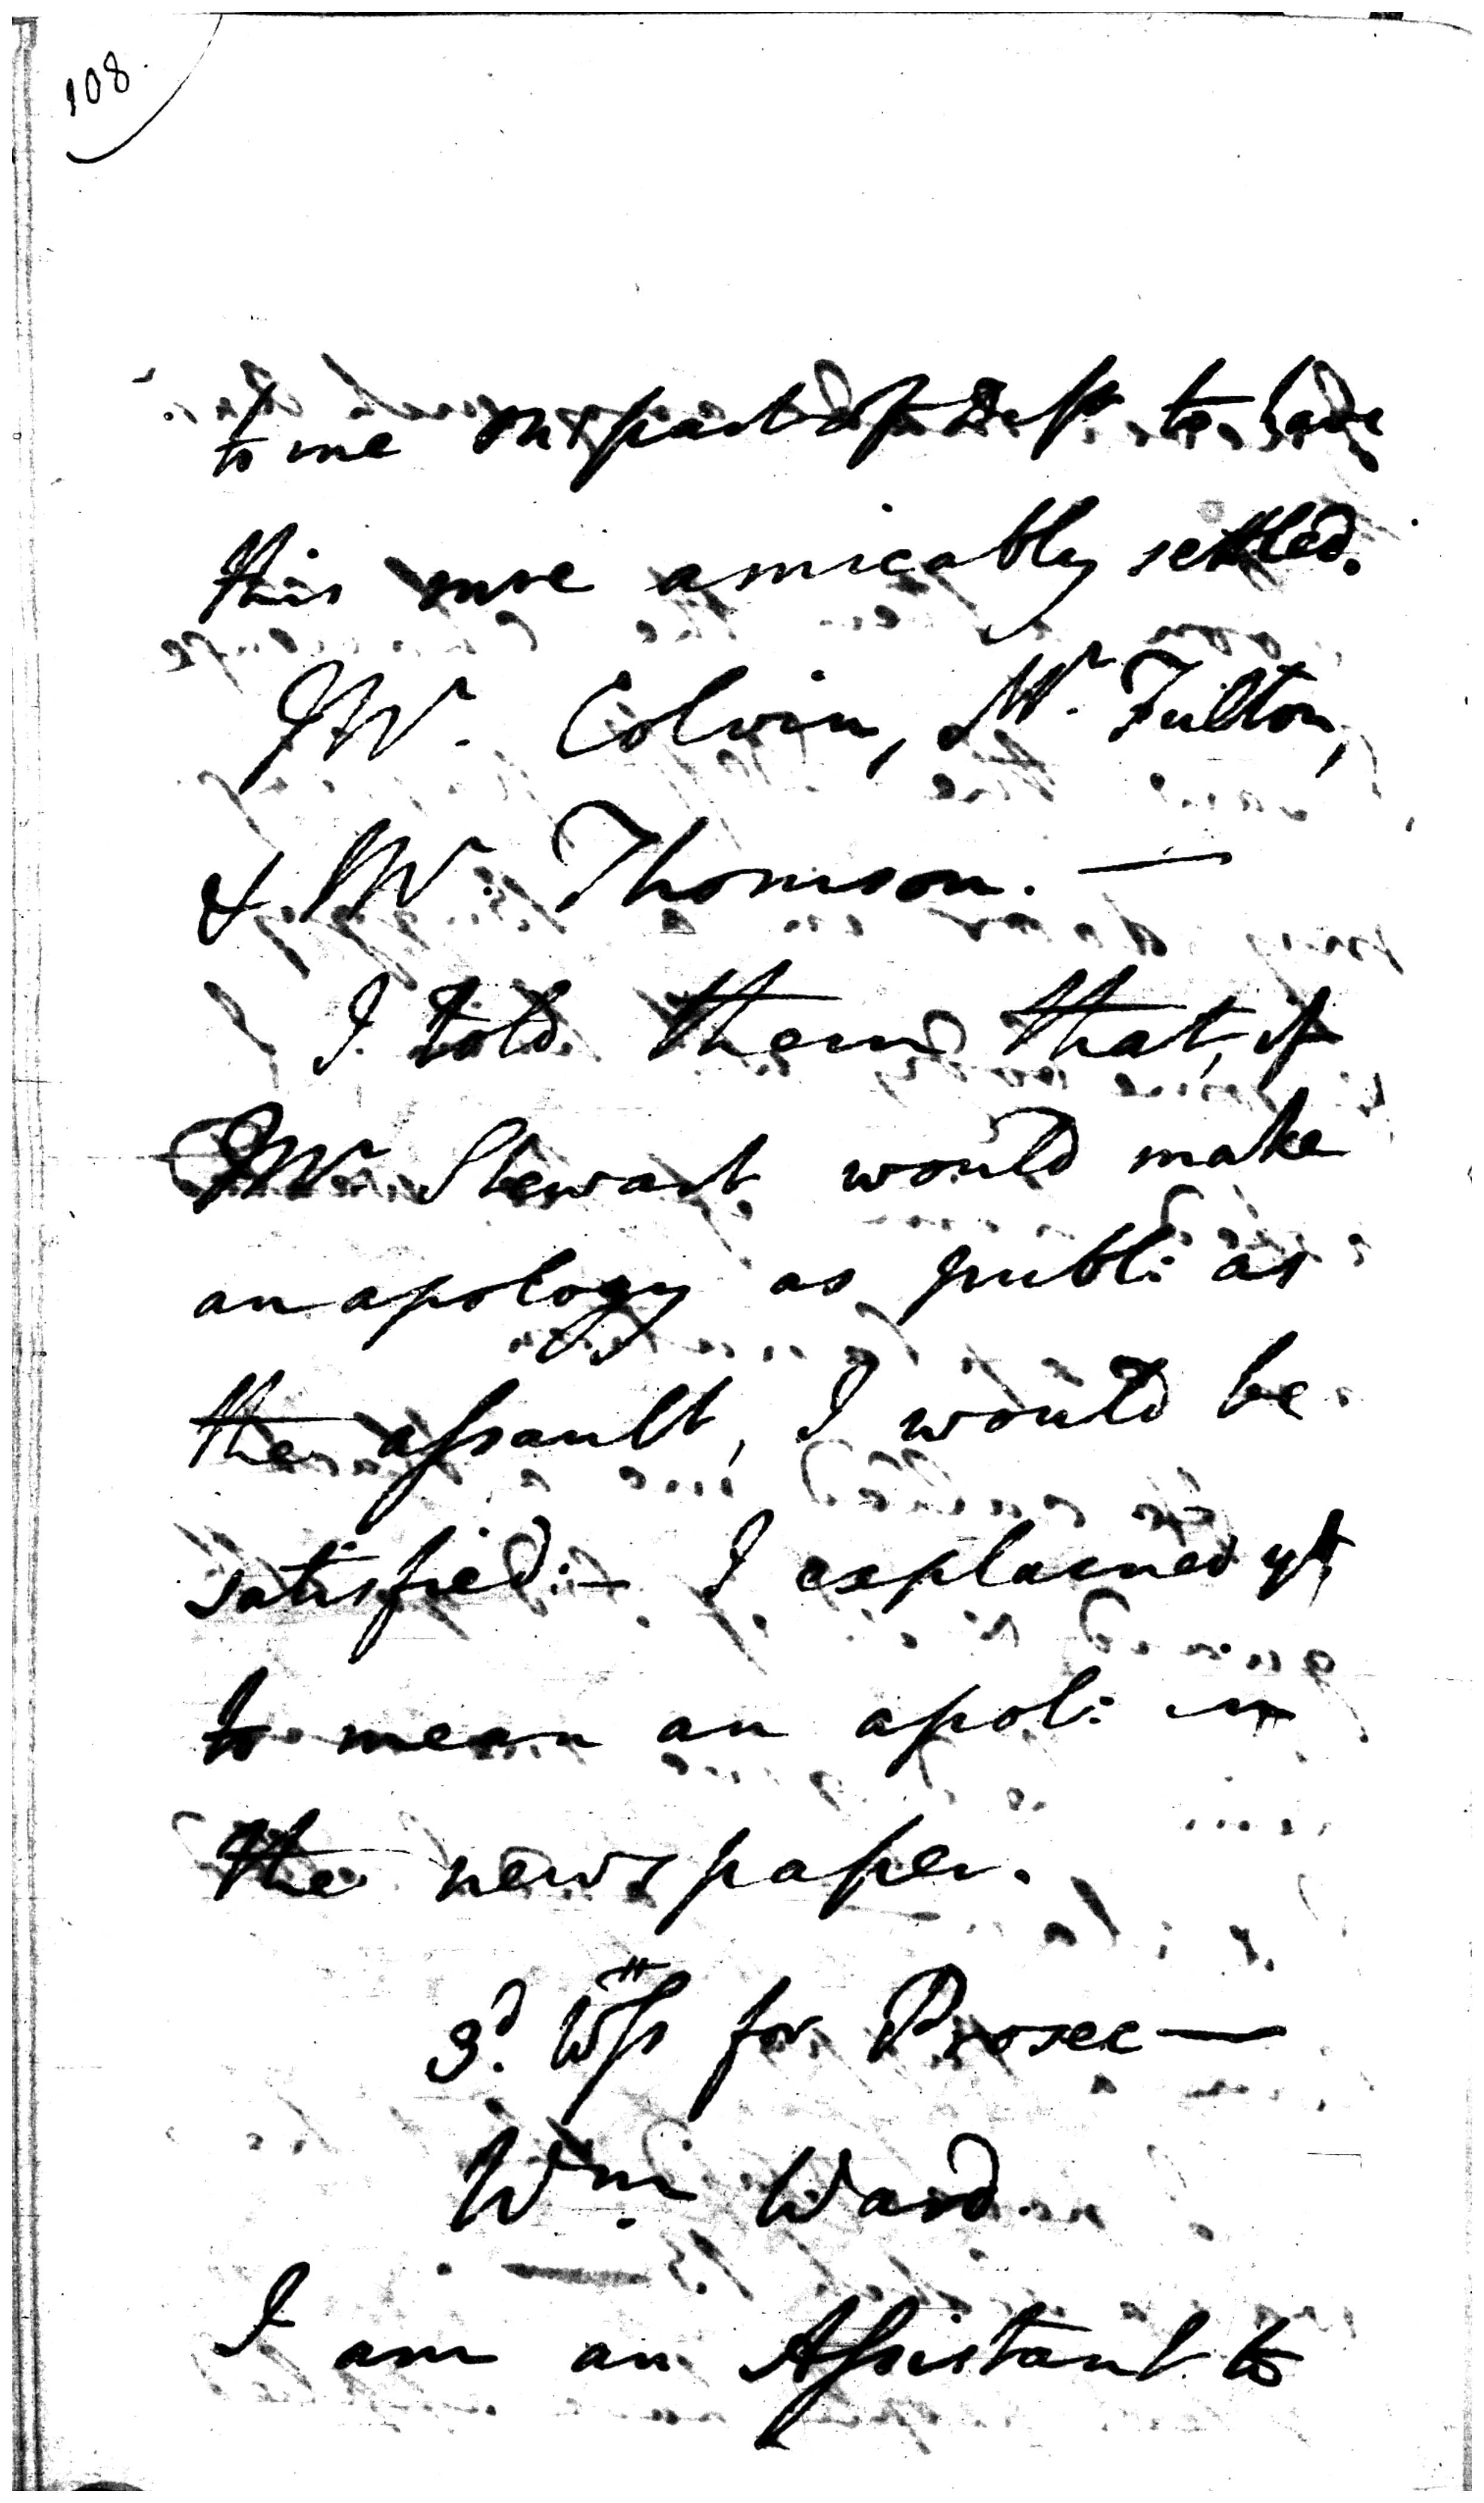 108.
to me on part of Deft to have
this more amicably settled.
Mr. Colvin, Mr. Fulton,
& Mr. Thomson. —
I told them that, if
Mr. Stewart would make
an apology as publ: as
the assault, I would be
satisfied:— I explained yt
to mean an apol: in
the newspaper.
3d. Wss for Prosec—
Wm. Ward.
I am an Assistant to